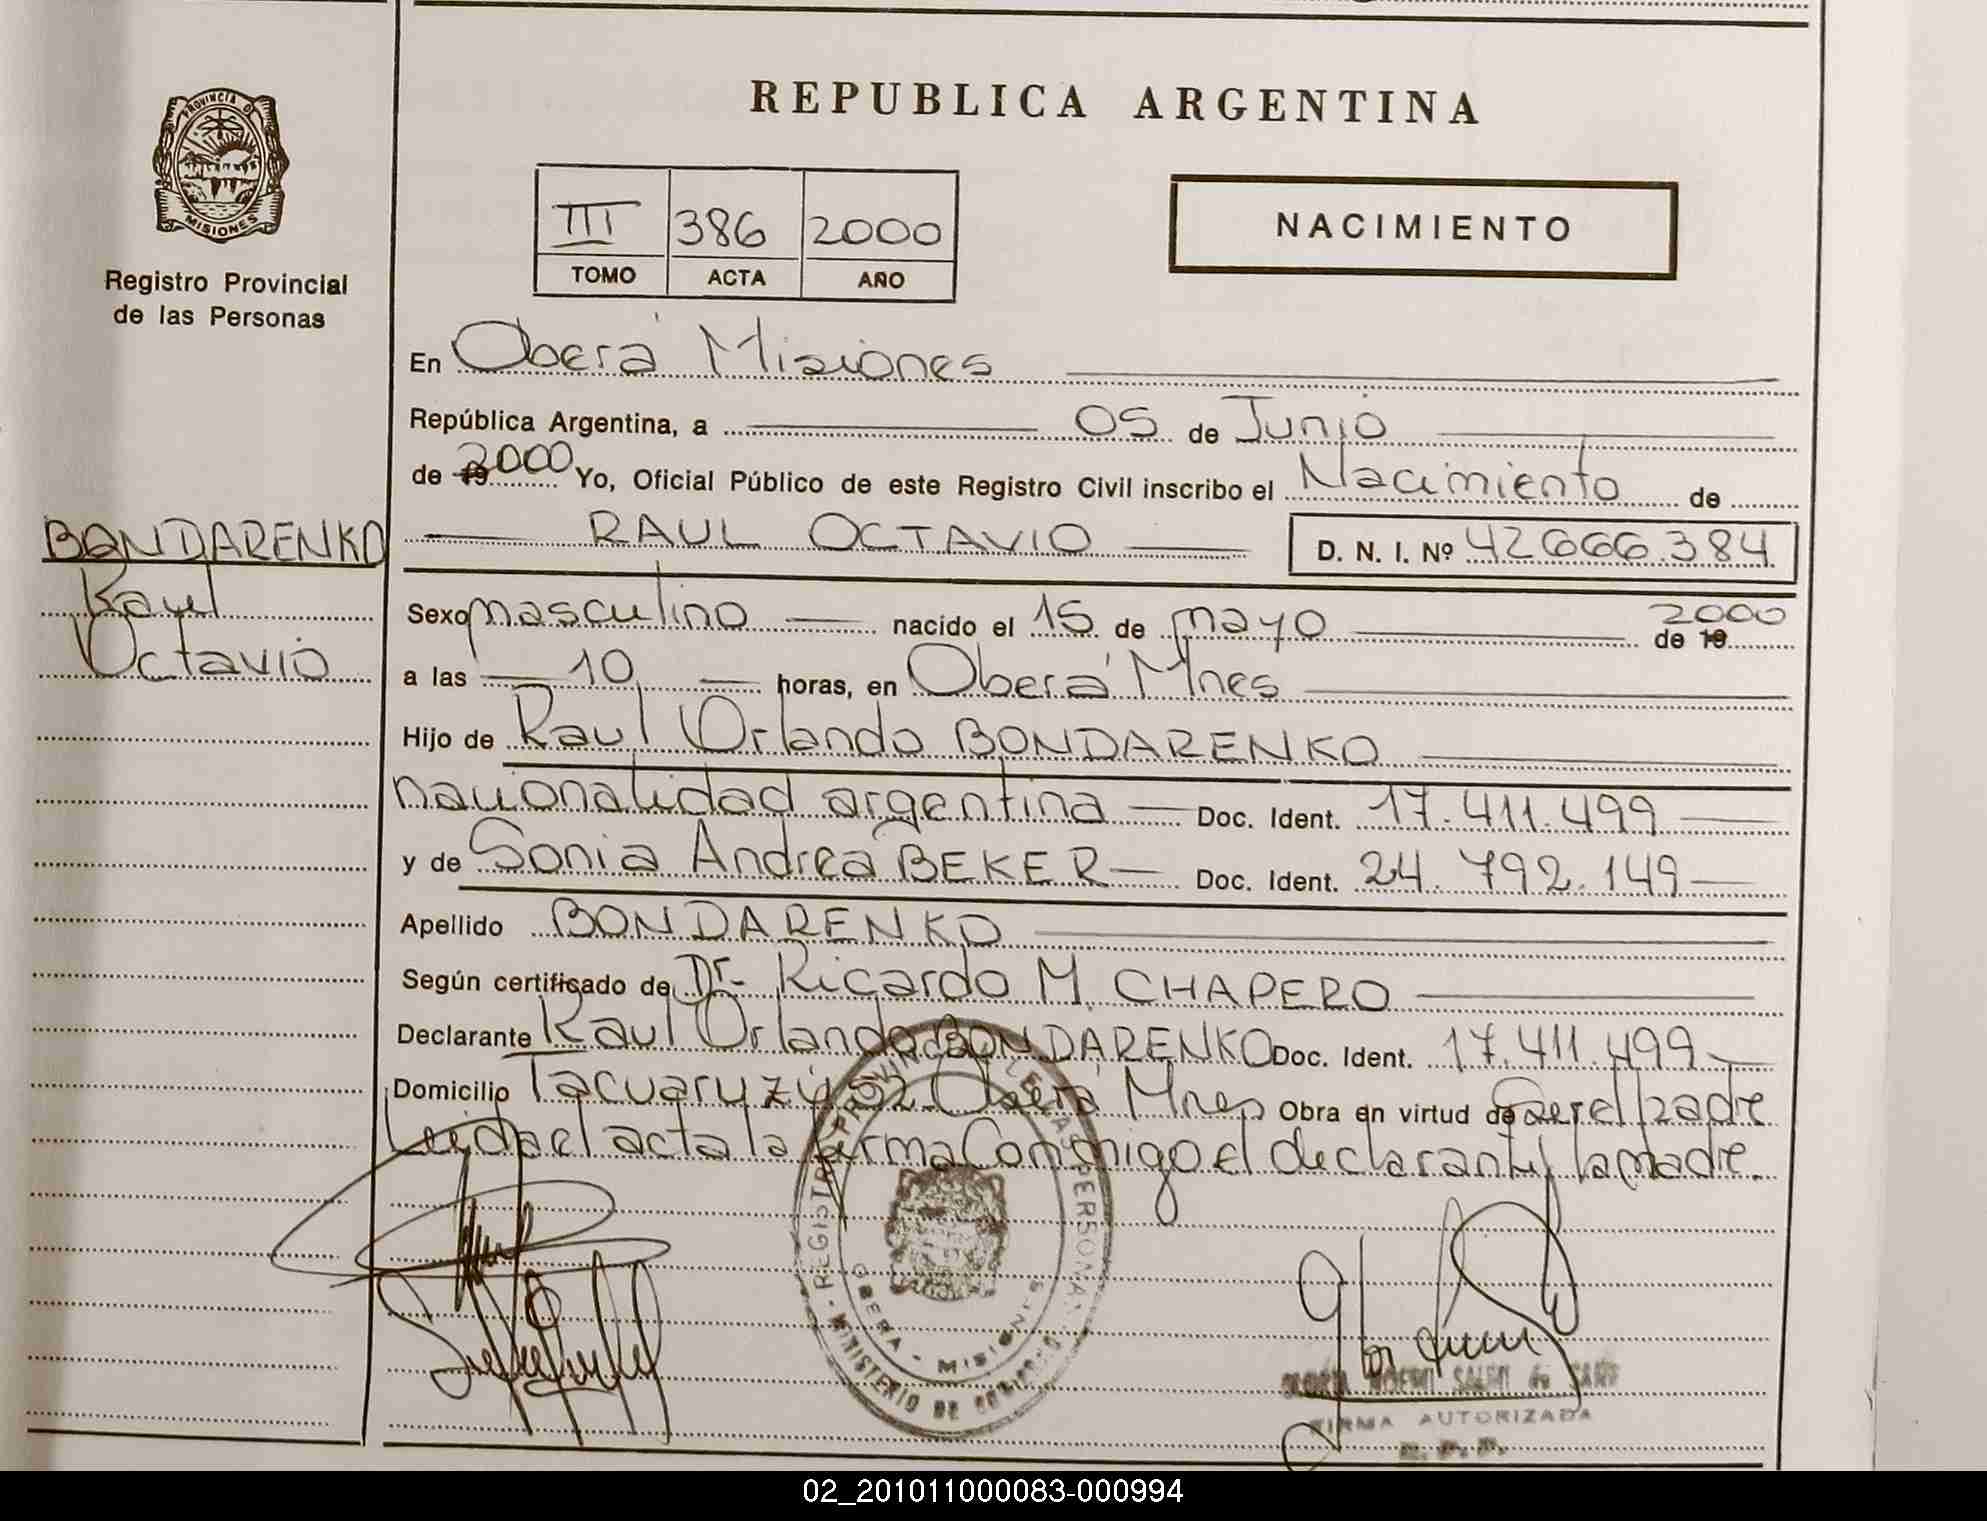 REPUBLICA ARGENTINA
PROVINCIA DE
MISIONES
Registro Provincial
de las Personas
III 386 2000
TOMO ACTA AÑO
NACIMIENTO
En Oberá Misiones
República Argentina, a 05 de Junio
de 19 2000 Yo, Oficial Público de este Registro Civil inscribo el Nacimiento de
BONDARENKO
Raul
Octavio
RAUL OCTAVIO D. N. I. Nº 42666.384
Sexo masculino nacido el 15 de mayo de 19 2000
a las 10 horas, en Oberá Mnes
Hijo de Raul Orlando BONDARENKO
nacionalidad argentina Doc. Ident. 17.411.499
y de Sonia Andrea BEKER Doc. Ident. 24.792.149
Apellido BONDARENKO
Según certificado de Dr. Ricardo M. CHAPERO
Declarante Raul Orlando BONDARENKO Doc. Ident. 17.411.499
Domicilio Tacuaruzú 52 Oberá Mnes Obra en virtud de ser el padre
Leida el acta la firma Conmigo el declarante y la madre.
OBERA - MISIONES
FIRMA AUTORIZADA
02_201011000083-000994